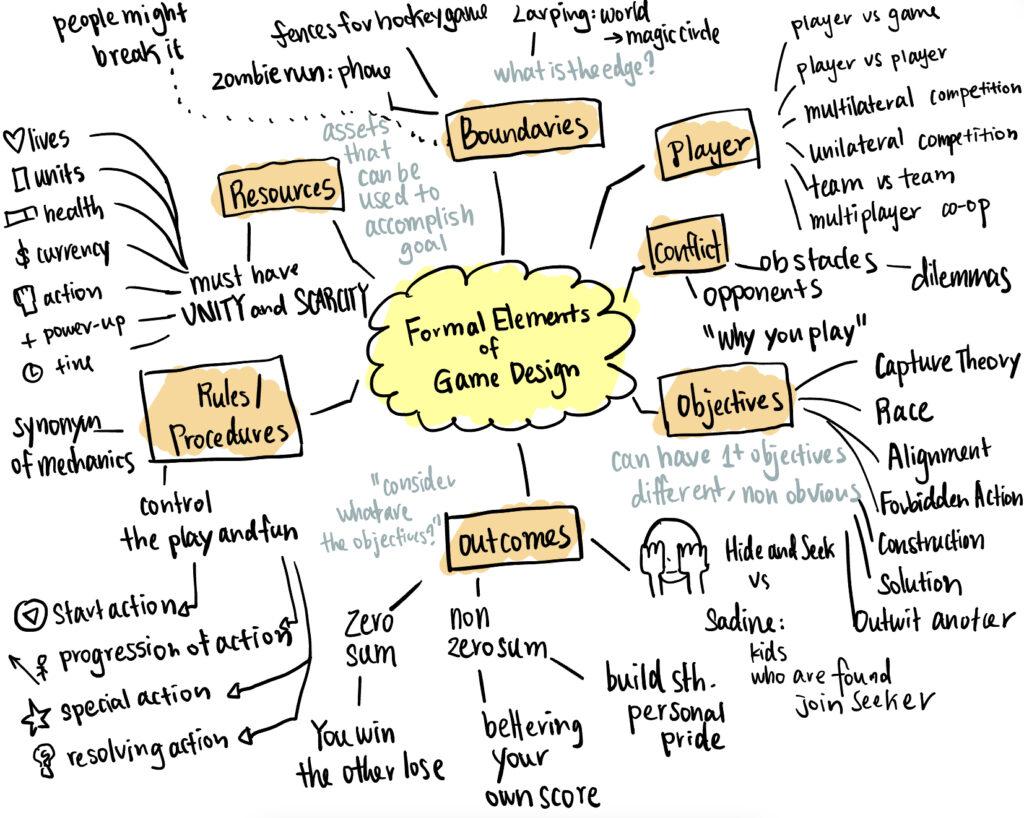 people might
break it
fences for hockey game
zombie run: phone
Larping: world
→ magic circle
what is the edge?
Boundaries
player vs game
player vs player
multilateral competition
unilateral competition
team vs team
multiplayer co-op
Player
assets
that
can be
used to
accomplish
goal
Resources
lives
units
health
$ currency
action
+ power-up
time
must have
UNITY and SCARCITY
Conflict
obstacles
dilemmas
opponents
Formal Elements
of
Game Design
"Why you play"
Objectives
Capture Theory
Race
Alignment
Forbidden Action
Construction
Solution
Outwit another
can have 1+ objectives
different, non obvious
Rules/
Procedures
synonym
of mechanics
control
the play and fun
Start action
progression of action
special action
resolving action
"consider
what are
the objectives?"
Outcomes
Zero
sum
You win
the other lose
non
zero sum
bettering
your
own score
build sth.
personal
pride
Hide and Seek
vs
Sadine:
kids
who are found
join seeker